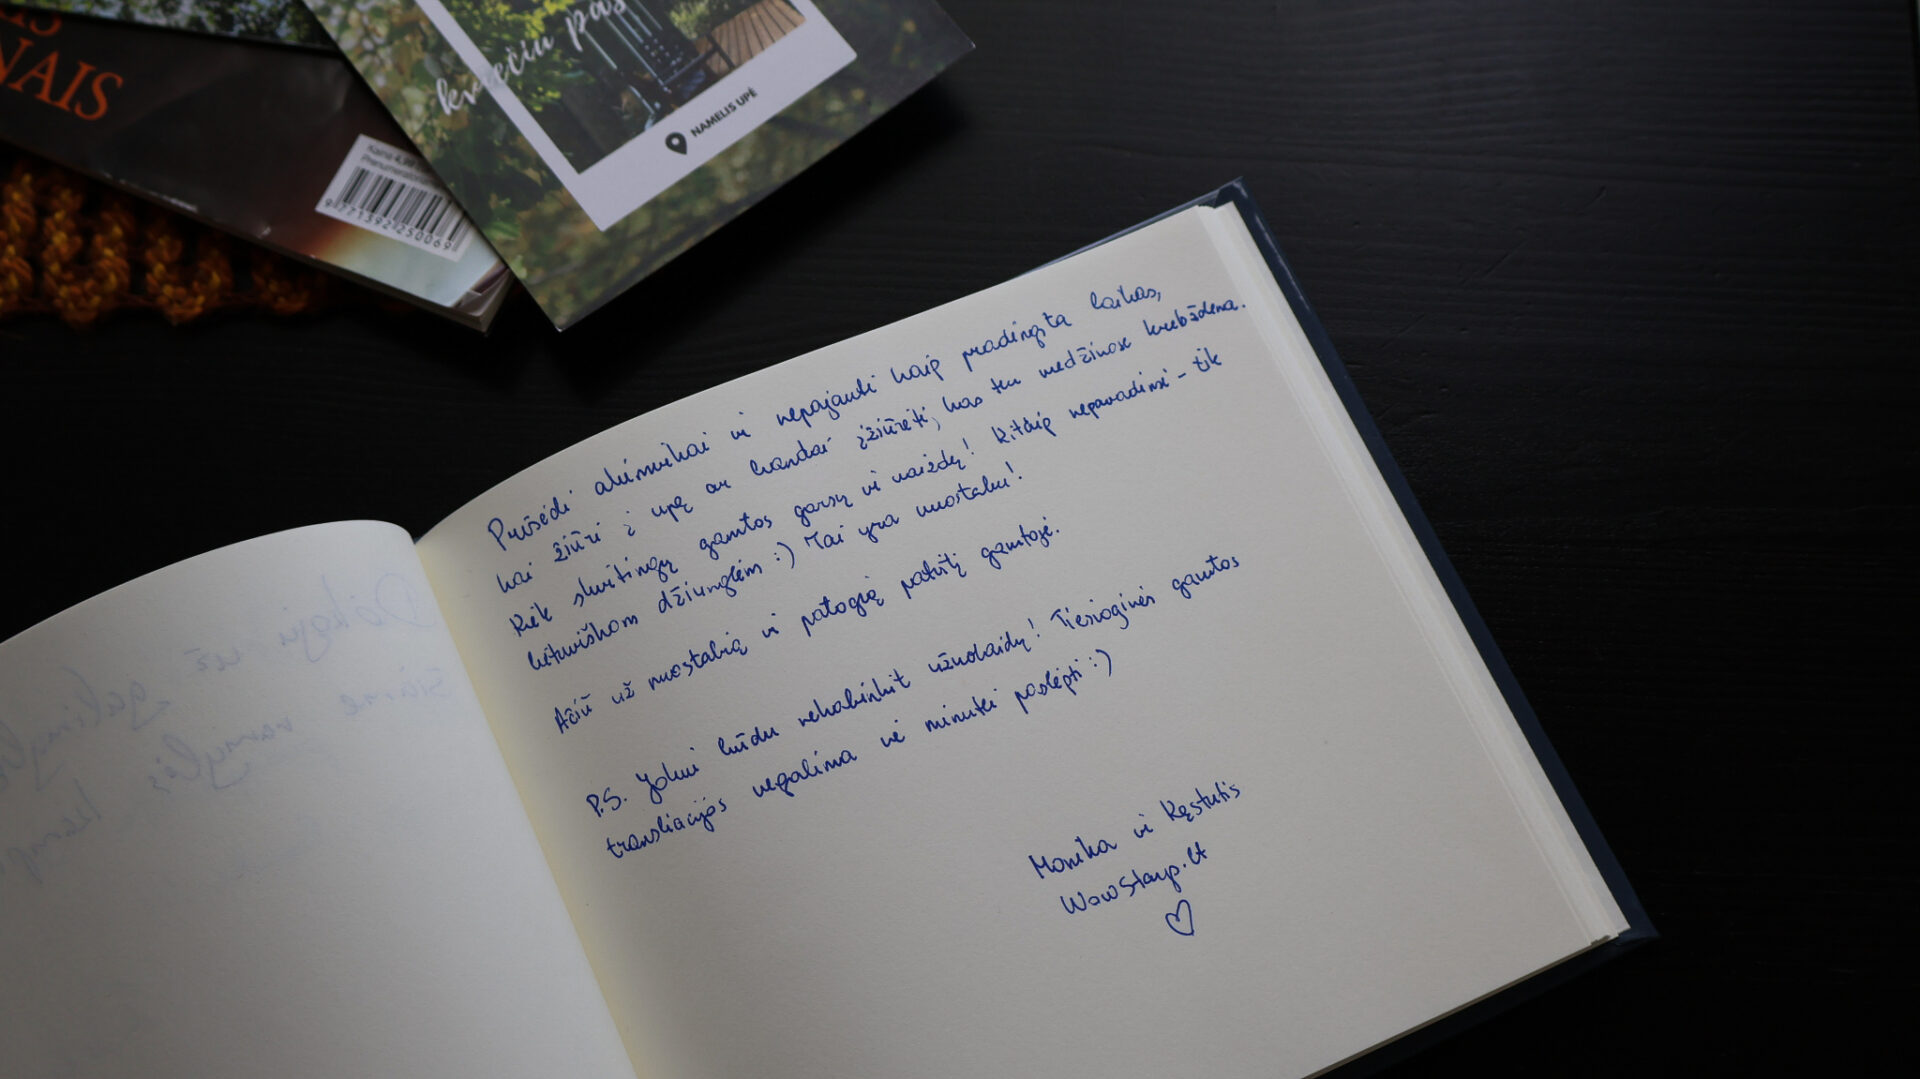 NAIS
kviečiu pas
NAMELIS UPĖ
Kaina 4,99
9 771392 250069
Prisėdi akimirkai ir nepajauti kaip pradingsta laikas,
kai žiūri į upę ar bandai įžiūrėti, kas ten medžiuose krebždena.
Kiek skirtingų gamtos garsų ir vaizdų! Kitaip nepavadinsi - tik
lietuviškom džiunglėm :) Tai yra nuostabu!
Ačiū už nuostabią ir patogią patirtį gamtoje.
P.S. Jokiu būdu nekabinkit užuolaidų! Tiesioginės gamtos
transliacijos negalima nė minutei paslėpti :)
Monika ir Kęstutis
WowStamp.lt
Dėkoju už galimybę